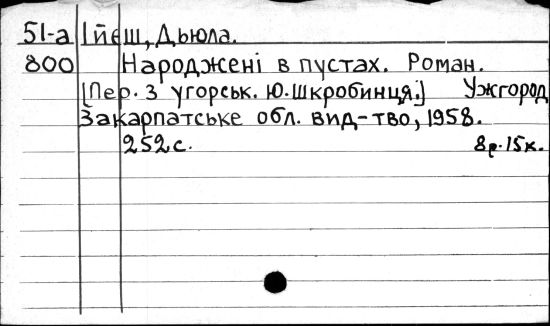 51-а Ійєш, Дьюла.
800 Народжені в пустах. Роман.
[Пер. З угорськ. Ю. Шкробинця.] Ужгород
Закарпатське обл. вид-тво, 1958.
252 с. 8р. 15к.